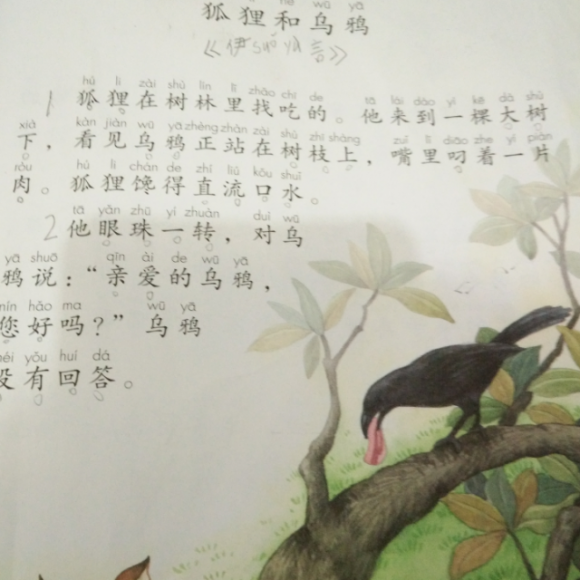 hé wū yā
狐狸和乌鸦
《伊suǒ yù言》
hú li zài shù lín lǐ zhǎo chī de tā lái dào yì kē dà shù
1 狐狸在树林里找吃的。他来到一棵大树
xià kàn jiàn wū yā zhèng zhàn zài shù zhī shàng zuǐ lǐ diāo zhe yí piàn
下，看见乌鸦正站在树枝上，嘴里叼着一片
ròu hú li chán de zhí liú kǒu shuǐ
肉。狐狸馋得直流口水。
tā yǎn zhū yí zhuàn duì wū
2 他眼珠一转，对乌
yā shuō qīn ài de wū yā
鸦说：“亲爱的乌鸦，
nín hǎo ma wū yā
您好吗？”乌鸦
méi yǒu huí dá
没有回答。